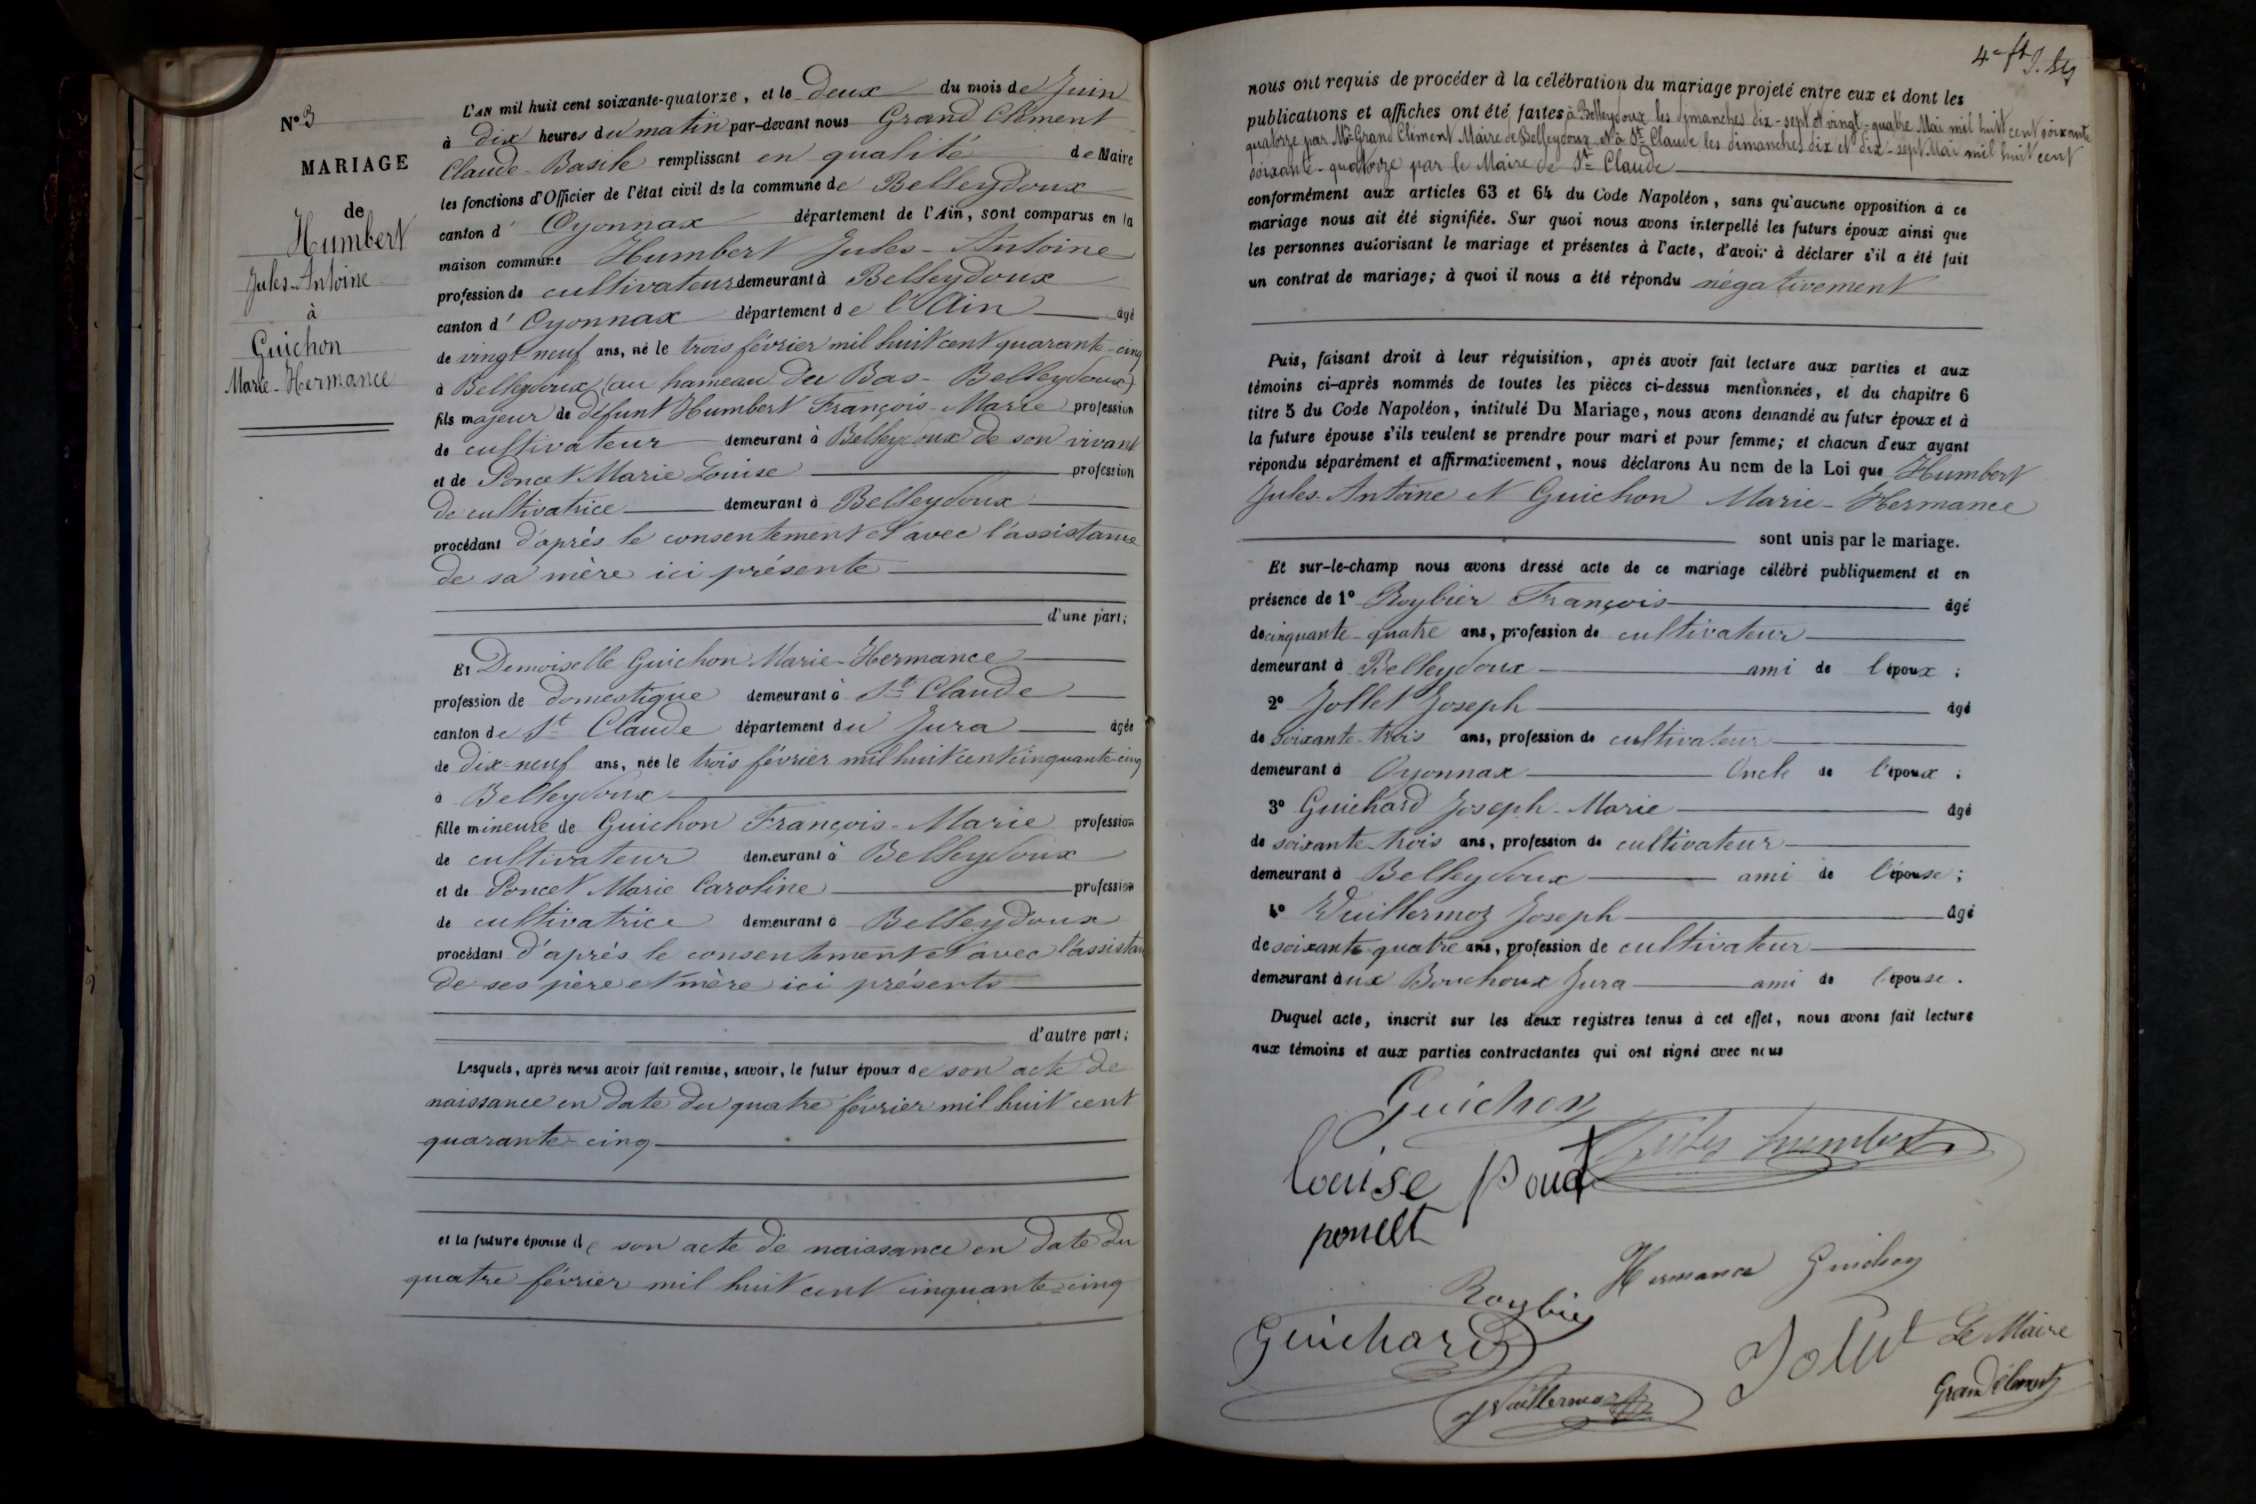 N° 3
MARIAGE
de
Humbert
Jules-Antoine
à
Guichon
Marie-Hermance
L'AN mil huit cent soixante-quatorze, et le deux du mois de Juin
à dix heures du matin par-devant nous Grand Clément
Claude-Basile remplissant en qualité de Maire
les fonctions d'Officier de l'état civil de la commune de Belleydoux
canton d' Oyonnax département de l'Ain, sont comparus en la
maison commune Humbert Jules-Antoine
profession de cultivateur demeurant à Belleydoux
canton d' Oyonnax département de l'Ain âgé
de vingt-neuf ans, né le trois février mil huit cent quarante-cinq
à Belleydoux (au hameau du Bas-Belleydoux)
fils majeur de défunt Humbert François-Marie profession
de cultivateur demeurant à Belleydoux de son vivant
et de Poncet Marie Louise profession
de cultivatrice demeurant à Belleydoux
procédant d'après le consentement et avec l'assistance
de sa mère ici présente
d'une part;
Et Demoiselle Guichon Marie-Hermance
profession de domestique demeurant à St Claude
canton de St Claude département du Jura âgée
de dix-neuf ans, née le trois février mil huit cent cinquante-cinq
à Belleydoux
fille mineure de Guichon François-Marie profession
de cultivateur demeurant à Belleydoux
et de Poncet Marie Caroline profession
de cultivatrice demeurant à Belleydoux
procédant d'après le consentement et avec l'assistan
de ses père et mère ici présents
d'autre part;
Lesquels, après nous avoir fait remise, savoir, le futur époux de son acte de
naissance en date du quatre février mil huit cent
quarante-cinq
et la future épouse de son acte de naissance en date du
quatre février mil huit cent cinquante-cinq
4e ft
nous ont requis de procéder à la célébration du mariage projeté entre eux et dont les
publications et affiches ont été faites à Belleydoux les dimanches dix-sept et vingt-quatre Mai mil huit cent soixante
quatorze par Mr Grand Clément Maire de Belleydoux et à St Claude les dimanches dix et dix-sept Mai mil huit cent
soixante-quatorze par le Maire de St Claude
conformément aux articles 63 et 64 du Code Napoléon, sans qu'aucune opposition à ce
mariage nous ait été signifiée. Sur quoi nous avons interpellé les futurs époux ainsi que
les personnes autorisant le mariage et présentes à l'acte, d'avoir à déclarer s'il a été fait
un contrat de mariage; à quoi il nous a été répondu négativement
Puis, faisant droit à leur réquisition, après avoir fait lecture aux parties et aux
témoins ci-après nommés de toutes les pièces ci-dessus mentionnées, et du chapitre 6
titre 5 du Code Napoléon, intitulé Du Mariage, nous avons demandé au futur époux et à
la future épouse s'ils veulent se prendre pour mari et pour femme; et chacun d'eux ayant
répondu séparément et affirmativement, nous déclarons Au nom de la Loi que Humbert
Jules-Antoine et Guichon Marie-Hermance
sont unis par le mariage.
Et sur-le-champ nous avons dressé acte de ce mariage célébré publiquement et en
présence de 1° Roybier François âgé
de cinquante-quatre ans, profession de cultivateur
demeurant à Belleydoux ami de l'époux;
2° Jollet Joseph âgé
de soixante-trois ans, profession de cultivateur
demeurant à Oyonnax Oncle de l'époux;
3° Guichard Joseph-Marie âgé
de soixante trois ans, profession de cultivateur
demeurant à Belleydoux ami de l'épouse;
4° Vuillermoz Joseph âgé
de soixante quatre ans, profession de cultivateur
demeurant aux Bouchoux Jura ami de l'épouse.
Duquel acte, inscrit sur les deux registres tenus à cet effet, nous avons fait lecture
aux témoins et aux parties contractantes qui ont signé avec nous
Guichon
Jules humbert
Louise
poncet
Hermance Guichon
Roybier
Guichard
Jollet
Le Maire
Vuillermoz
Grand Clément